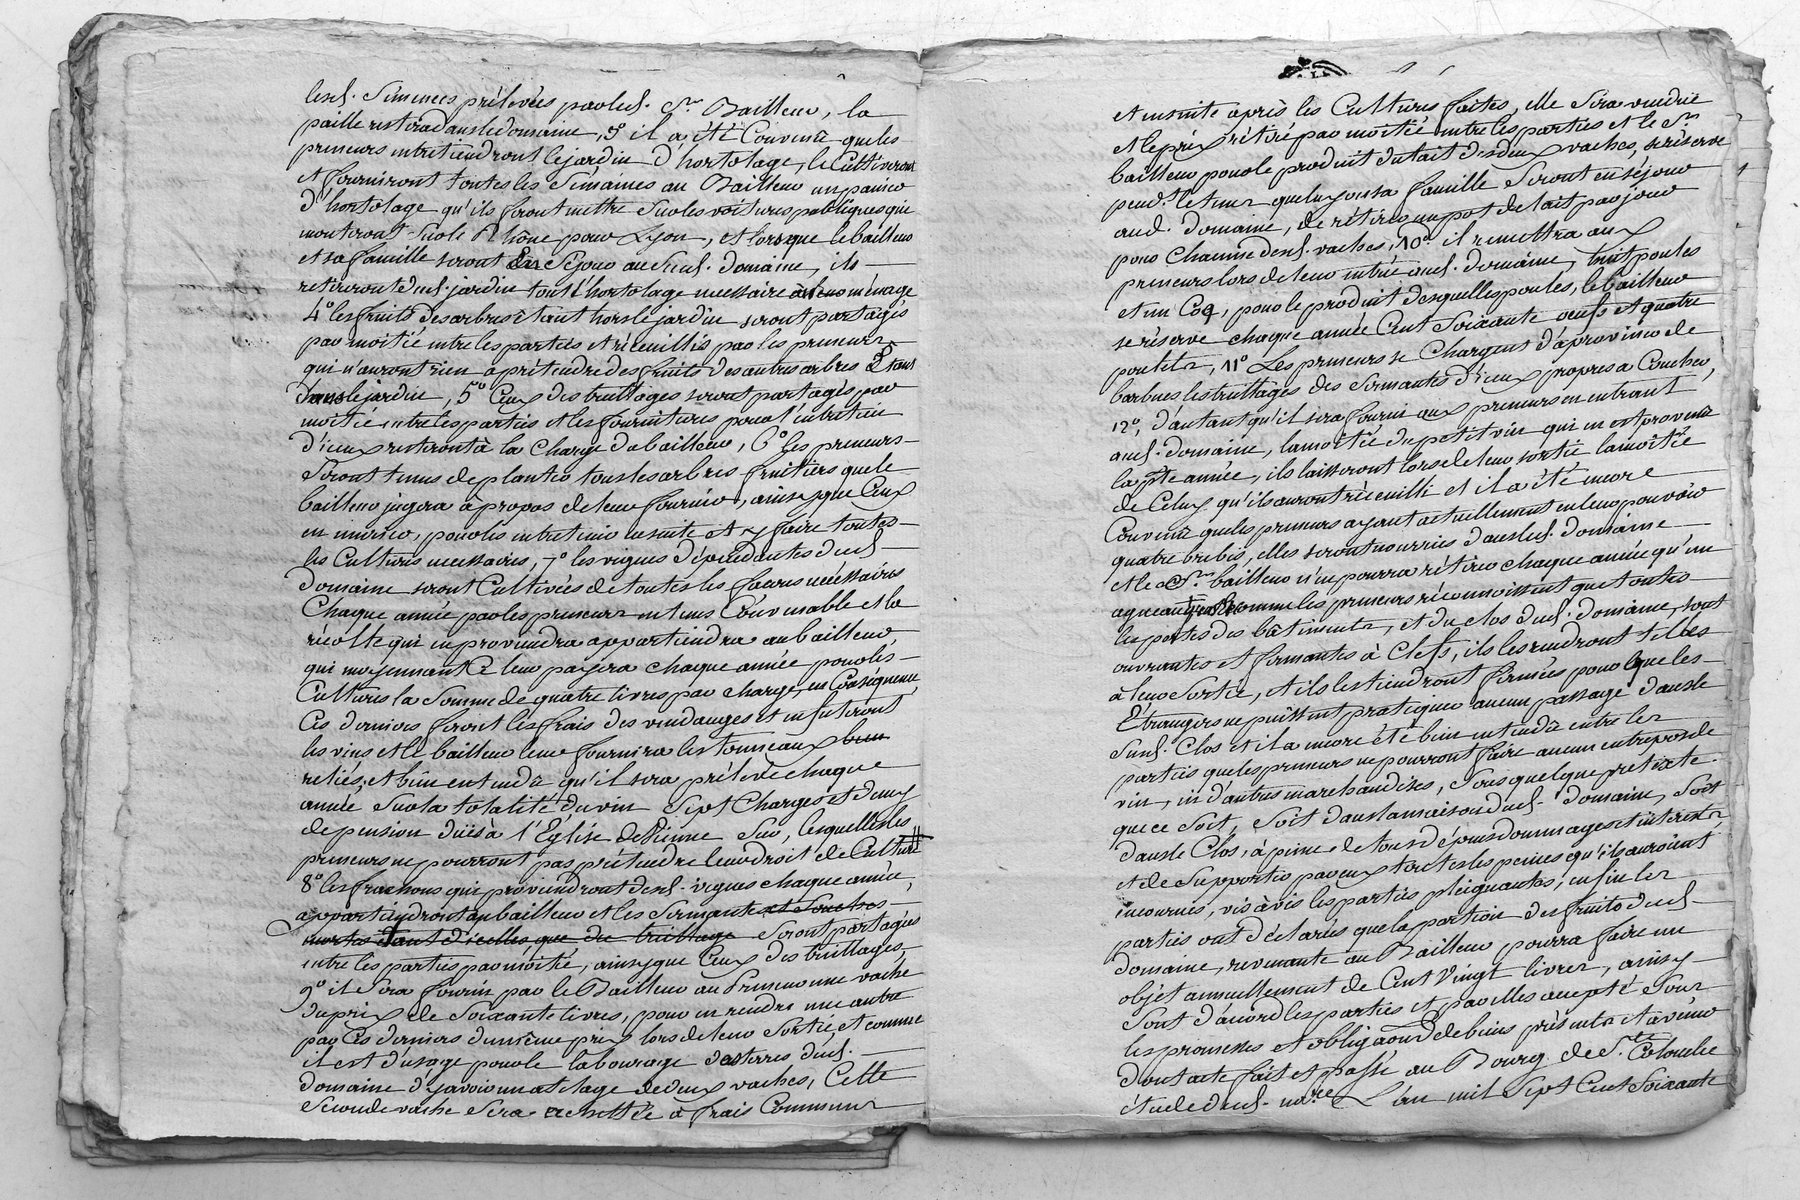 lesd. Semences prélevées par led. Sr. Bailleur, la
paille restera dans le domaine, 3° il a été Convenu que les
preneurs entretiendront le jardin d'hortolage, le Cultiveront
et fourniront toutes les Semaines au Bailleur un panier
d'hortolage qu'ils feront mettre sur les voitures publiques qui
monteront sur le Rhône pour Lyon, et lorsque le bailleur
et sa famille seront En Séjour au susd. domaine, ils
retireront dud. jardin tout l'hortolage necessaire à leur ménage
4° les fruits des arbres étant hors le jardin seront partagés
par moitié entre les parties et récueillis par les preneurs
qui n'auront rien à prétendre des fruits des autres arbres Etant
dans le jardin, 5° Ceux des treillages seront partagés par
moitié entre les parties et les fournitures pour l'entretien
d'iceux resteront à la Charge du bailleur, 6° les preneurs
Seront tenus de planter tous les arbres fruitiers que le
bailleur jugera à propos de leur fournir, ainsy que Ceux
en murier, pour les entretenir ensuite et y faire toutes
les Cultures necessaires, 7° les vignes dépendantes dud.
domaine seront Cultivées de toutes les façons nécessaires
Chaque année par les preneurs en tems Convenable et la
récolte qui en proviendra appartiendra au bailleur,
qui moyennant Ce leur payera chaque année pour les
Cultures la Somme de quatre livres par charge, en Conséquence
Ces derniers feront les frais des vendanges et en futeront
les vins et le bailleur leur fournira les tonneaux bien
reliés, et bien entendu qu'il sera prélevé chaque
année sur la totalité du vin Sept Charges et demy
de pension düës à l'Eglise de Vienne Sur, lesquelles les
preneurs ne pourront pas prétendre leur droit de Culture
8° les qui proviendront desd. vignes chaque année,
appartiendront au bailleur et les Sermants et Souches
mortes tant d'icelles, que du treillage Seront partagés
entre les parties par moitié, ainsy que Ceux des treillages,
9° il Sera fourni par le Bailleur au Preneur une vache
du prix de Soixante livres, pour en rendre une autre
par Ces derniers du même prix lors de leur Sortie et comme
il est d'usage pour le labourage des terres dud.
domaine d'y avoir un attelage de deux vaches, Cette
Seconde vache Sera achettée à frais Communs
et ensuite après les Cultures faites, elle Sera vendue
et le prix rétiré par moitié entre les parties et le Sr.
bailleur pour le produit du lait des deux vaches, se réserve
pend.t le tems que luy ou sa famille Seront en séjour
aud. domaine, de rétirer un pot de lait par jour
pour Chacune desd. vaches, 10° il remettra aux
preneurs lors de leur entrée aud. domaine, huit poules
et un Coq, pour le produit desquelles poules, le bailleur
se réserve chaque année Cent Soixante oeufs et quatre
poulets, 11° Les preneurs se Chargent d'aprovisier de
barbues les treillages des Sermantes d'iceux propres a Coucher,
12° d'autant qu'il sera fourni aux preneurs en entrant
aud. domaine, la moitié du petit vin qui en est provenu
la pte année, ils laisseront lors de leur sortie la moitié
de Celuy qu'ils auront récueilli et il a été encore
Convenu que les preneurs ayant actuellement en leur pouvoir
quatre brebis, elles seront nourries dans led. domaine
et le Sr. bailleur n'en pourra rétirer chaque année qu'un
agneau comme les preneurs réconnoissent que toutes
les portes des bâtiments, et du clos dud. domaine, sont
ouvrantes et fermantes à Clefs, ils les rendront telles
à leur Sortie, et ils les tiendront fermées pour que les
Etrangers ne puissent pratiquer aucun passage dans le
Susd. Clos et il a encore été bien entendu entre les
parties que les preneurs ne pourront faire aucun entrepos de
vin, ni d'autres marchandises, sous quelque pretexte
que ce soit, Soit dans la maison dud. domaine, Soit
dans le Clos, à peine de tous dépens dommages et interets,
et de Supporter par eux toutes les peines qu'ils auroient
encourues, vis à vis les parties pleignantes, enfin les
parties ont déclaré que la portion des fruits dud.
domaine, revenante au Bailleur pourra faire un
objét annuellement de Cent Vingt livres, ainsy
Sont d'accord les parties et par elles accepté Sous
les promesses et obligaons de biens présents et à venir
dont acte fait et passé au Bourg de Ste. Colombe
étude dud. nore L'an mil Sept Cent Soixante